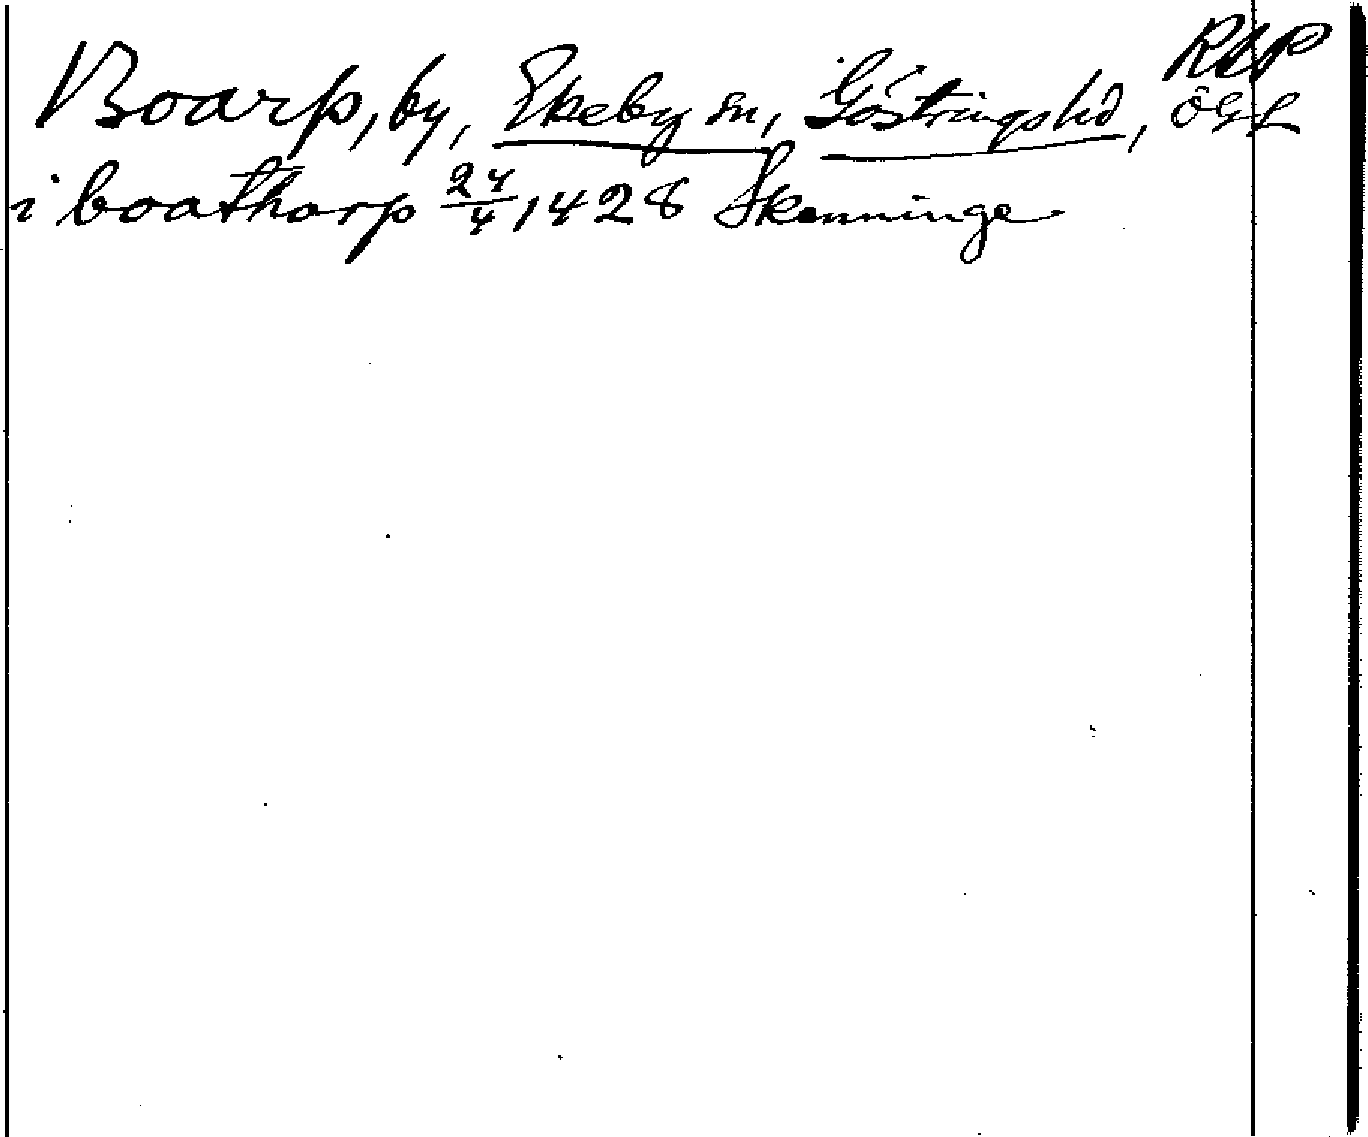 RAP
Boarp, by, Ekeby sn, Göstringshd, ÖGL
i boathorp 24/4 1428 Skenninge